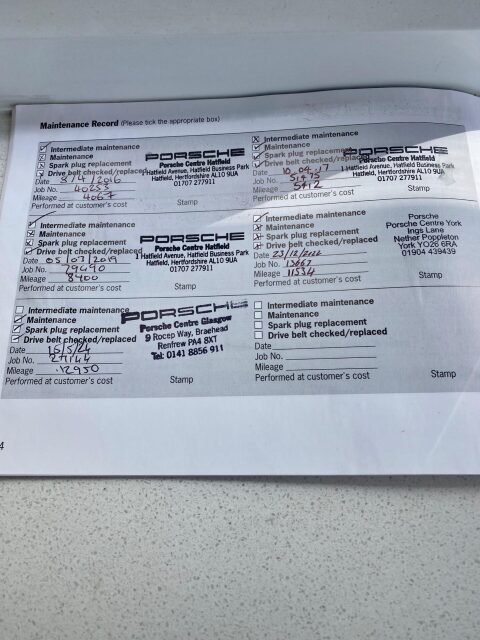 Maintenance Record (Please tick the appropriate box)
Intermediate maintenance
Maintenance
Spark plug replacement
Drive belt checked/replaced
Date 8/4/2016
Job No. 40253
Mileage 4067
Performed at customer's cost
PORSCHE
Porsche Centre Hatfield
Hatfield Avenue, Hatfield Business Park
Hatfield, Hertfordshire AL10 9UA
01707 277911
Stamp
Intermediate maintenance
Maintenance
Spark plug replacement
Drive belt checked/replaced
Date 10.04.17
Job No.
Mileage 5412
Performed at customer's cost
PORSCHE
Porsche Centre Hatfield
Hatfield Avenue, Hatfield Business Park
Hatfield, Hertfordshire AL10 9UA
01707 277911
Stamp
Intermediate maintenance
Maintenance
Spark plug replacement
Drive belt checked/replaced
Date 05/07/2019
Job No. 79690
Mileage 8400
Performed at customer's cost
PORSCHE
Porsche Centre Hatfield
Hatfield Avenue, Hatfield Business Park
Hatfield, Hertfordshire AL10 9UA
01707 277911
Stamp
Intermediate maintenance
Maintenance
Spark plug replacement
Drive belt checked/replaced
Date
Job No. 13667
Mileage 11534
Performed at customer's cost
Porsche
Porsche Centre York
Ings Lane
Nether Poppleton
York YO26 6RA
01904 439439
Stamp
Intermediate maintenance
Maintenance
Spark plug replacement
Drive belt checked/replaced
Date 16/5/24
Job No. 27144
Mileage 12950
Performed at customer's cost
PORSCHE
Porsche Centre Glasgow
9 Rocep Way, Braehead
Renfrew PA4 8XT
Tel: 0141 8856 911
Stamp
Intermediate maintenance
Maintenance
Spark plug replacement
Drive belt checked/replaced
Date
Job No.
Mileage
Performed at customer's cost
Stamp
4